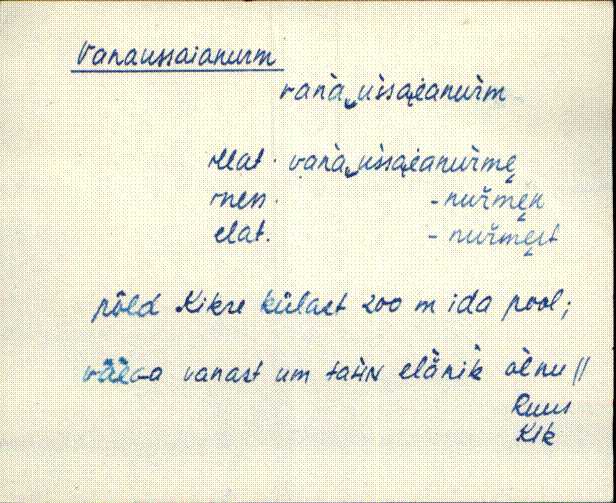 Vanaussaianurm
vanà‿ùssai̯anùrm
illat. vanà‿ùssai̯anùrmę
iness. -nuřmęn
elat. -nuřmęst
põld Kikre külast 200 m ida pool;
vanast um tähn elänik òlnu //
Ruus
Kik